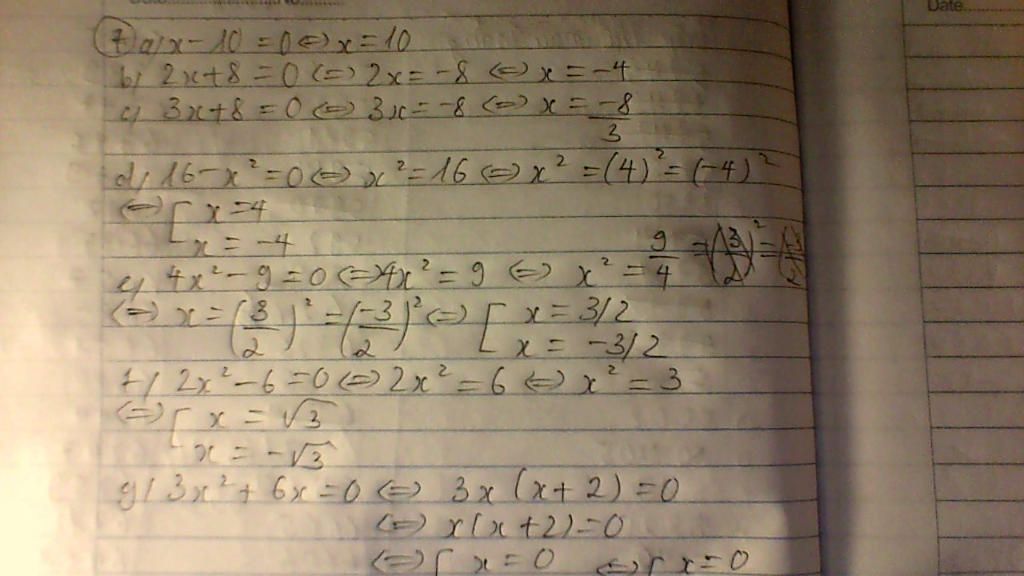 Date.............No............
Date
7 a) x - 10 = 0 <=> x = 10
b) 2x + 8 = 0 <=> 2x = -8 <=> x = -4
c) 3x + 8 = 0 <=> 3x = -8 <=> x = -8/3
d) 16 - x² = 0 <=> x² = 16 <=> x² = (4)² = (-4)²
<=> [ x = 4
x = -4
e) 4x² - 9 = 0 <=> 4x² = 9 <=> x² = 9/4
<=> x = (3/2)² = (-3/2)² <=> [ x = 3/2
x = -3/2
f) 2x² - 6 = 0 <=> 2x² = 6 <=> x² = 3
<=> [ x = √3
x = -√3
g) 3x² + 6x = 0 <=> 3x (x + 2) = 0
<=> x(x + 2) = 0
<=> [ x = 0 <=> [ x = 0